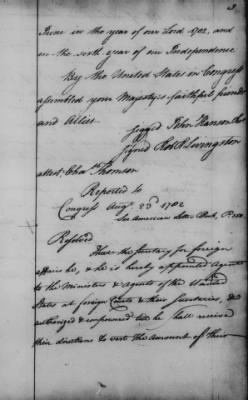 3
June in the year of our Lord 1782, and
in the sixth year of our Independence
By the United States in Congress
assembled your Majesty's faithful friends
and Allies.
Signed John Hanson
Signed Robt R Livingston
attest, Chas Thomson
Reported to
Congress Augt 23d 1782
See American Letter Book,
Resolved
That the Secretary for foreign
affairs be, & he is hereby appointed Agent
to the Ministers & Agents of the United
States at foreign Courts & their Secretaries, &
authorized & empowered till he shall receive
their directions to the Amount of their